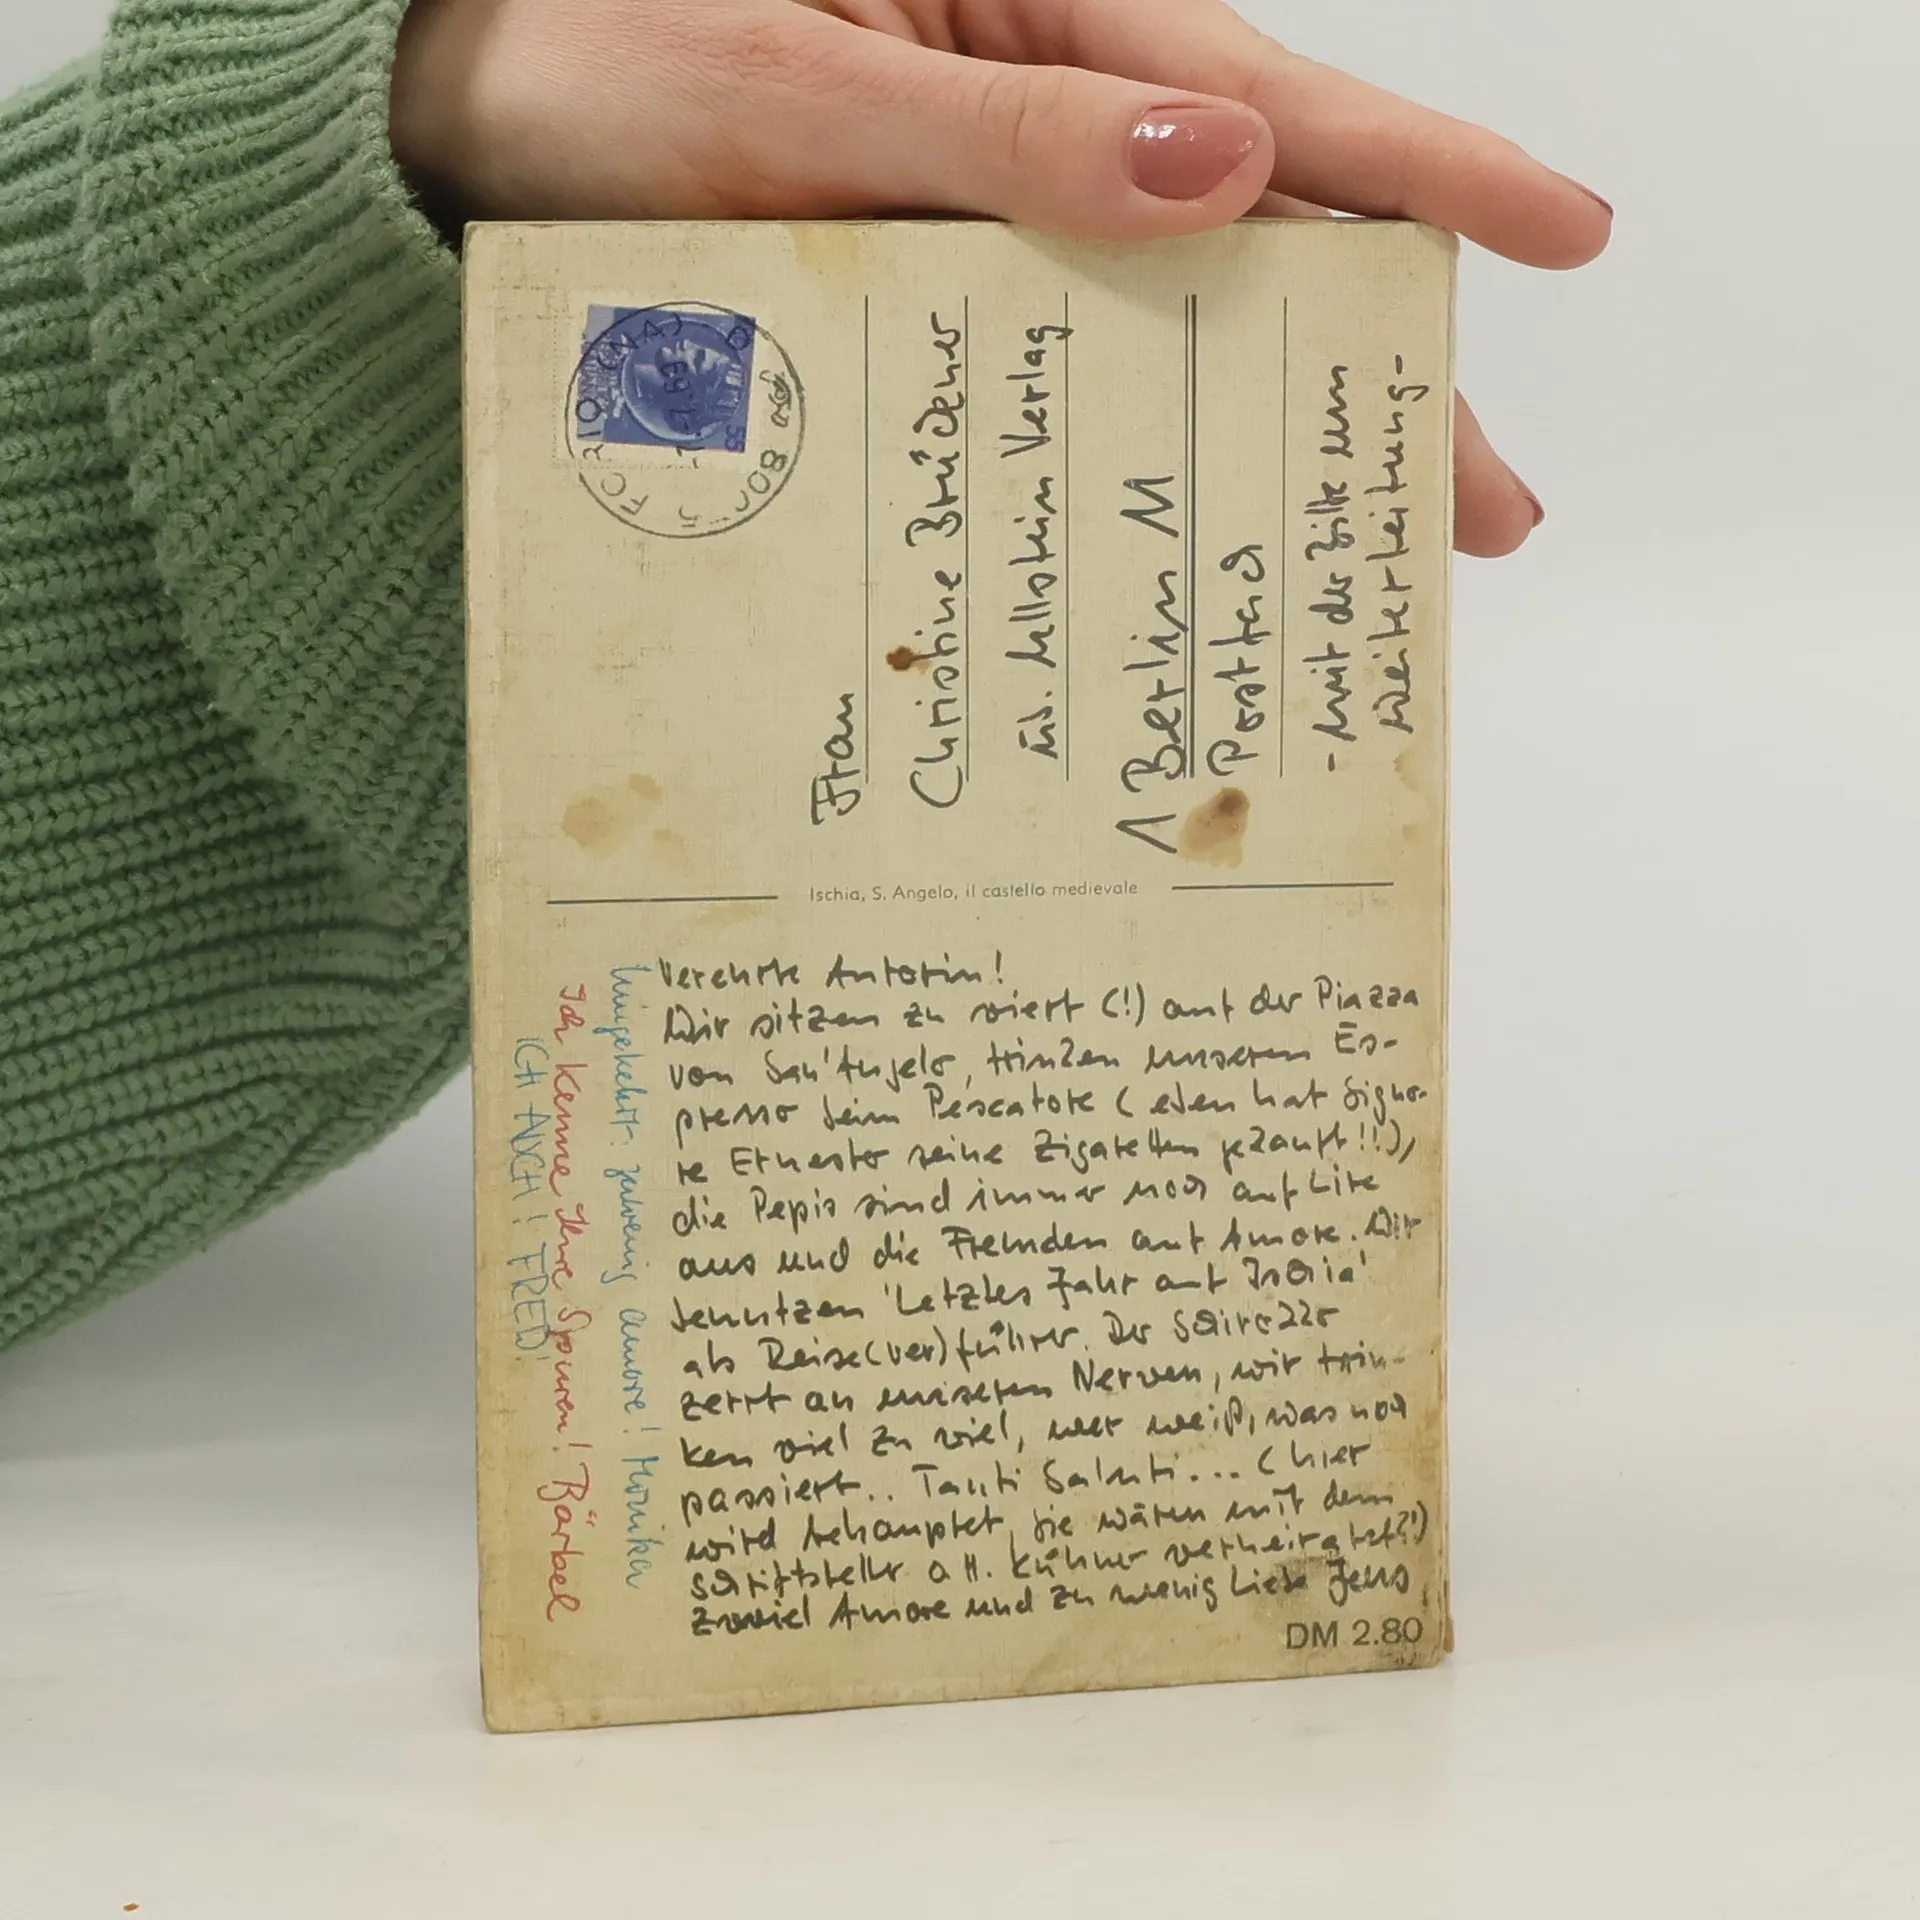 Frau
Christine Brückner
üb. Ullstein Verlag
1 Berlin 11
Postfach
- mit der Bitte um
Weiterleitung -
Ischia, S. Angelo, il castello medievale
Verehrte Autorin!
Wir sitzen zu viert (!) auf der Piazza
von San'Angelo, trinken unseren Es-
presso beim Pescatore (eben hat Signo-
re Ernesto seine Zigaretten gekauft!!),
die Pepis sind immer noch auf Lire
aus und die Fremden auf Amore. Wir
benutzen 'Letztes Jahr auf Ischia'
als Reise(ver)führer. Der Schirokko
zerrt an unseren Nerven, wir trin-
ken viel zu viel, wer weiß, was noch
passiert.. Tanti Saluti... (hier
wird behauptet, Sie wären mit dem
Schriftsteller O.H. Kühner verheiratet?!)
Zuviel Amore und zu wenig Liebe Jens
Umgekehrt: zuwenig amore! Monika
Ich kenne Ihre Spuren! Bärbel
ICH AUCH! FRED!
DM 2.80